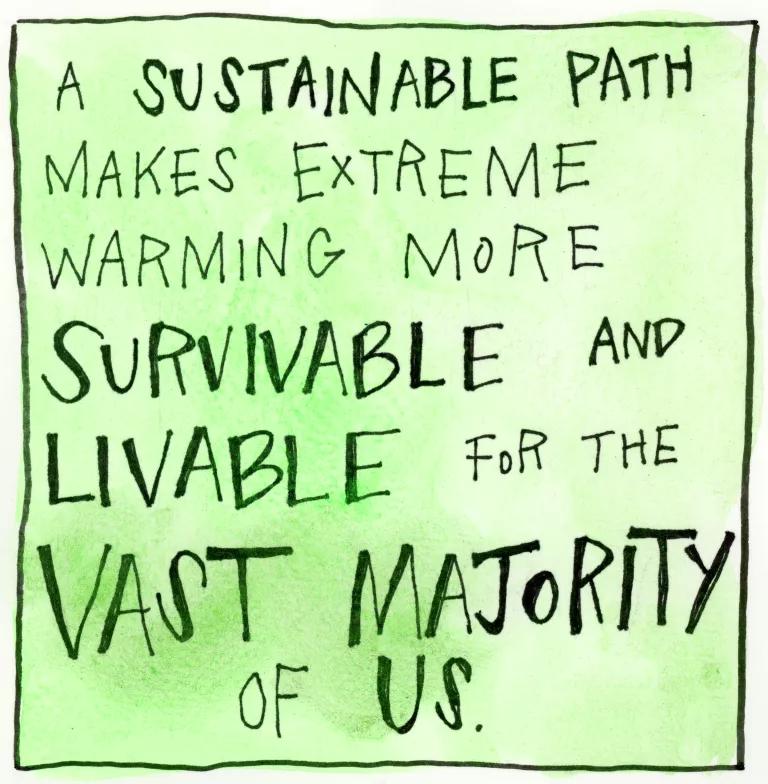 A SUSTAINABLE PATH
MAKES EXTREME
WARMING MORE
SURVIVABLE AND
LIVABLE FOR THE
VAST MAJORITY
OF US.